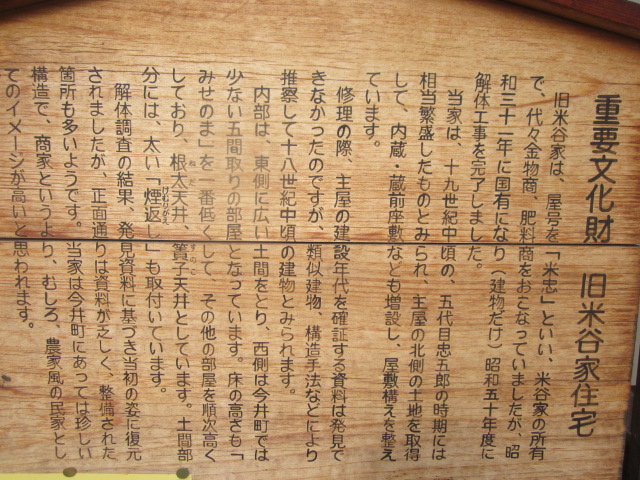 重要文化財 旧米谷家住宅
旧米谷家は、屋号を「米忠」といい、米谷家の所有
で、代々金物商、肥料商をおこなっていましたが、昭
和三十一年に国有になり（建物だけ）昭和五十年度に
解体工事を完了しました。
当家は、十九世紀中頃の、五代目忠五郎の時期には
相当繁盛したものとみられ、主屋の北側の土地を取得
して、内蔵・蔵前座敷なども増設し、屋敷構えを整え
ています。
修理の際、主屋の建設年代を確証する資料は発見で
きなかったのですが、類似建物、構造手法などにより
推察して十八世紀中頃の建物とみられます。
内部は、東側に広い土間をとり、西側は今井町では
少ない五間取りの部屋となっています。床の高さも「
みせのま」を一番低くして その他の部屋を順次高く
しており、根太天井、簀子天井としています。土間部
ねだ すのこ
分には、太い「煙返し」も取付いています。
けむりがえ
解体調査の結果、発見資料に基づき当初の姿に復元
されましたが、正面通りは資料が乏しく、整備された
箇所も多いようです。当家は今井町にあっては珍しい
構造で、商家というより、むしろ、農家風の民家とし
てのイメージが高いと思われます。